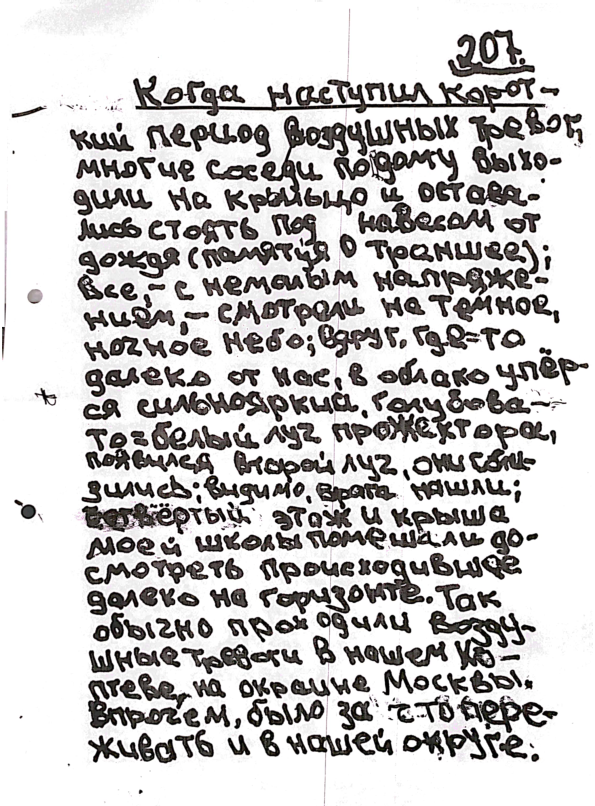 207.
Когда наступил корот-
кий период воздушных тревог,
многие соседи по дому выхо-
дили на крыльцо и остава-
лись стоять под навесом от
дождя (памятуя о траншее);
все, – с немалым напряже-
нием, – смотрели на темное,
ночное небо; вдруг, где=то
далеко от нас, в облако упёр-
ся сильнояркий, голубова-
то=белый луч прожектора,
появился второй луч, они сбли-
зились; видимо, врага нашли;
четвёртый этаж и крыша
моей школы помешали до-
смотреть происходившее
далеко на горизонте. Так
обычно проходили возду-
шные тревоги в нашем Ко-
птеве, на окраине Москвы.
Впрочем, было за что пере-
живать и в нашей округе.